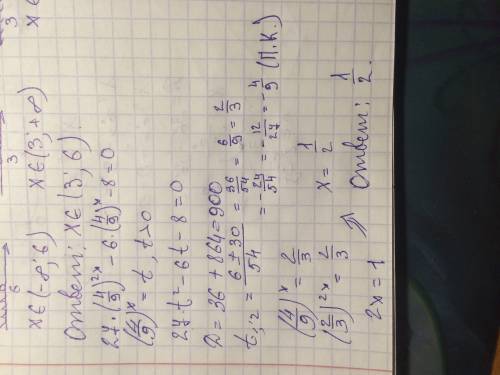 6 3 3
x∈(-∞; 6) x∈(3; +∞) x∈
Ответ: x∈(3; 6).
27·(4/9)^2x - 6·(4/9)^x - 8 = 0
(4/9)^x = t, t>0
27·t² - 6t - 8 = 0
D = 36 + 864 = 900
t₁;₂ = (6 ± 30)/54 = 36/54 = 6/9 = 2/3
= -24/54 = -12/27 = -4/9 (П.К.)
(4/9)^x = 2/3
(2/3)^2x = 2/3 x = 1/2
2x = 1 ⇒ Ответ: 1/2.